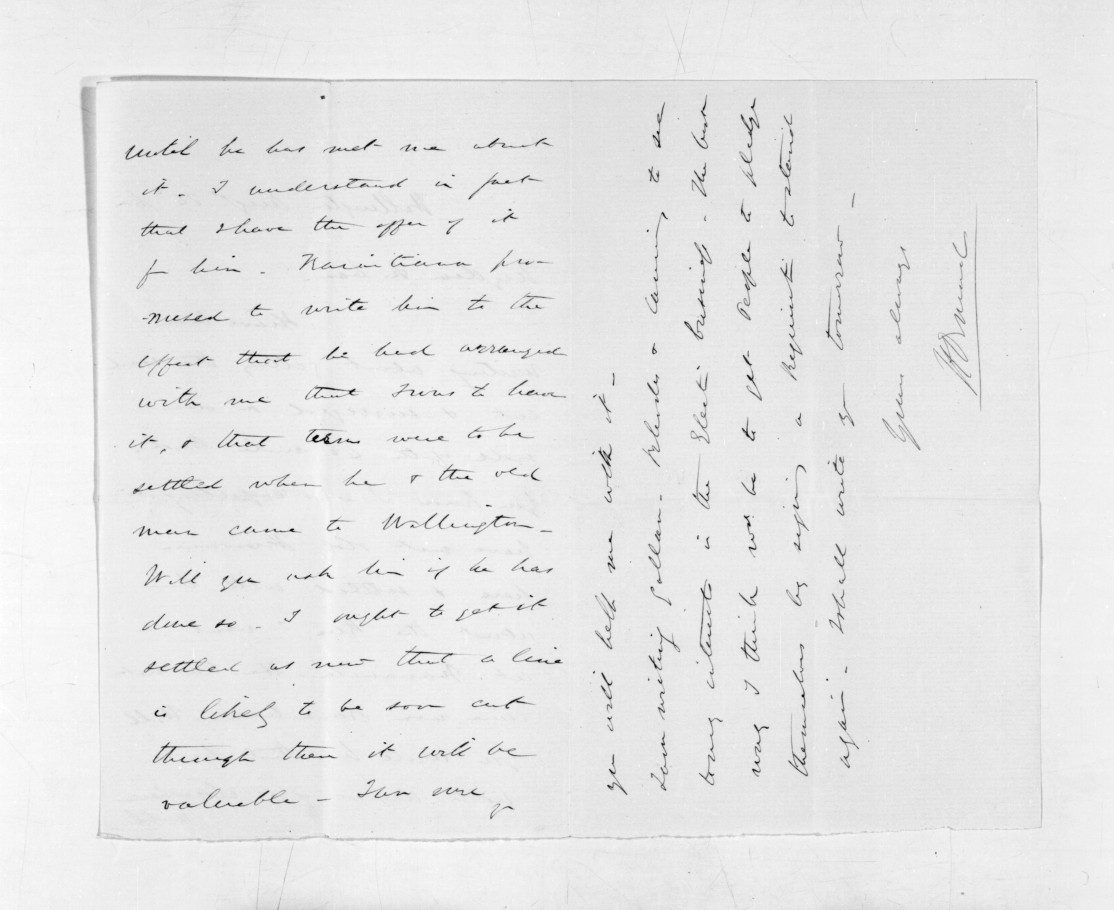 until he has met me about
it. I understand in fact
that I have the offer of it
for him. Karaitiana pro
mised to write him to the
effect that he had arranged
with me that I was to have
it, & that terms were to be
settled when he & the old
man came to Wellington –
Will you ask him if he has
done so. I ought to get it
settled as now that a line
is likely to be soon cut
through there it will be
valuable – I am sure
you will help me with it –
I am writing Gollan. & Canning to see
interests in the Electn business. The best
way I think wd. be to get people to pledge
themselves by signing a Requisitn to stand
again. I shall write you tomorrow –
Yours always